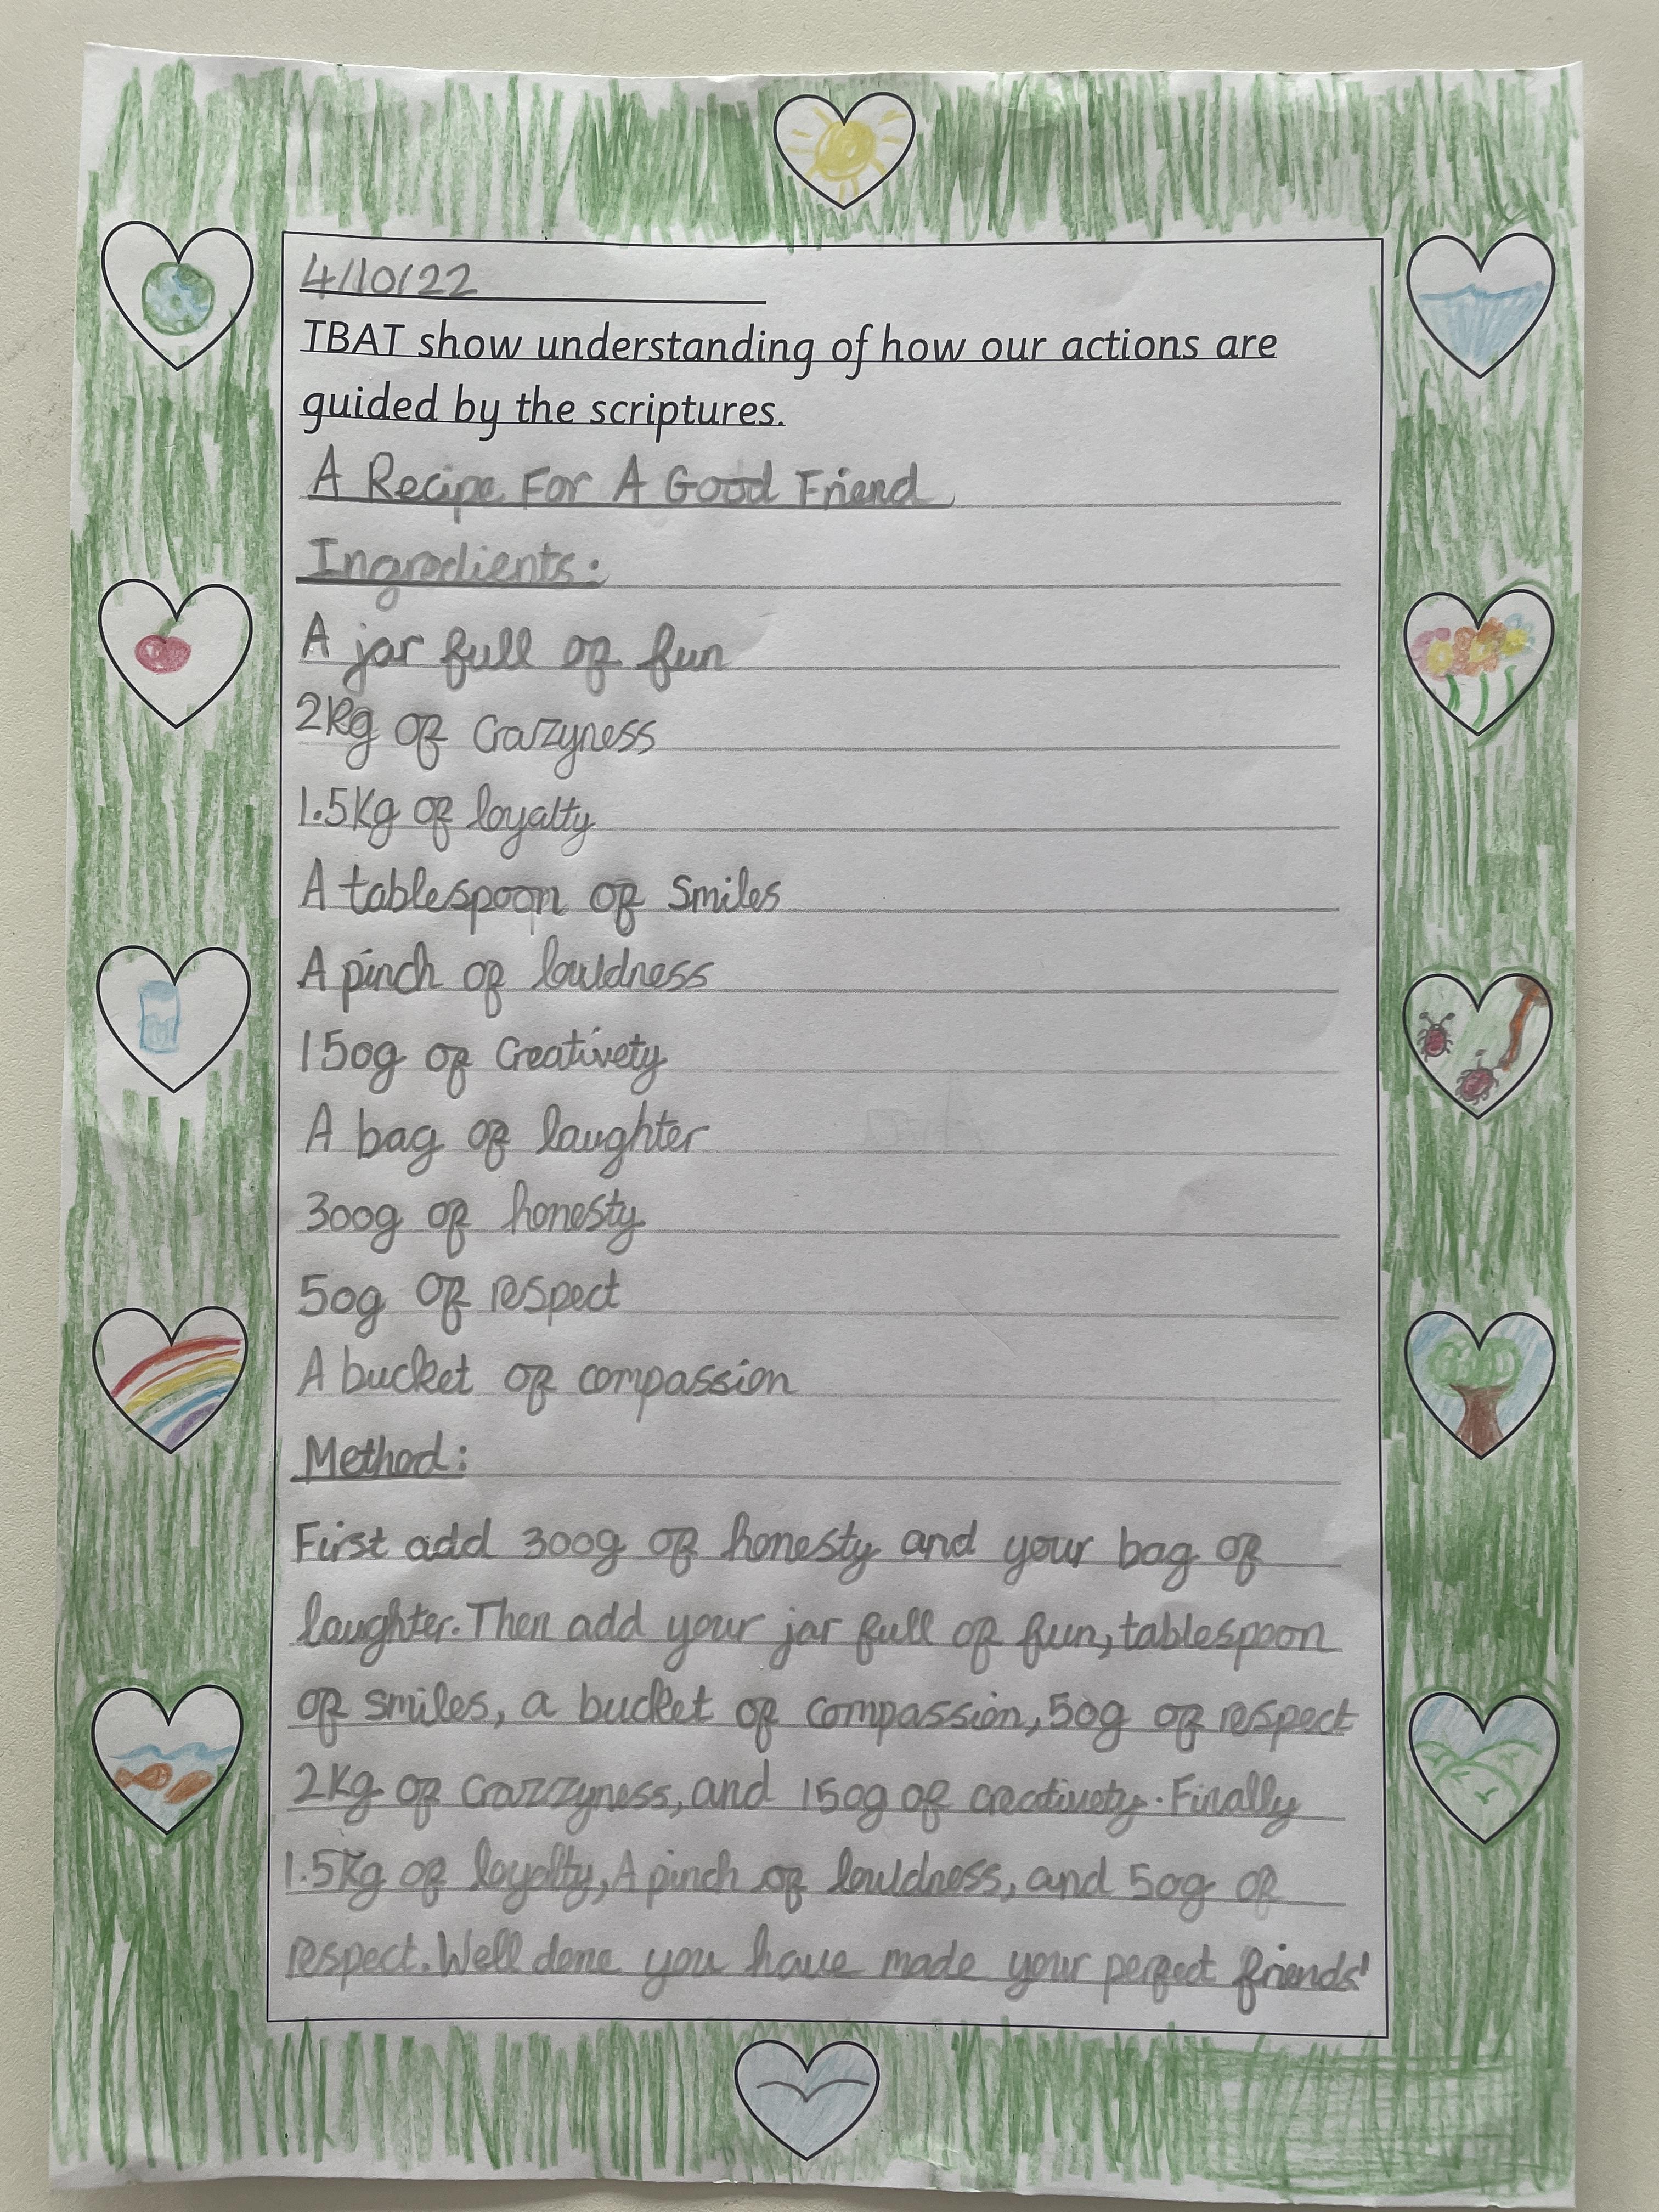 4/10/22
TBAT show understanding of how our actions are
guided by the scriptures.
A Recipe For A Good Friend
Ingredients:
A jar full of fun
2Kg of Crazyness
1.5Kg of loyalty
A tablespoon of Smiles
A pinch of louldness
150g of Creativety
A bag of laughter
300g of honesty
50g of respect
A bucket of compassion
Method:
First add 300g of honesty and your bag of
laughter. Then add your jar full of fun, tablespoon
of smiles, a bucket of compassion, 50g of respect
2Kg of Crazzyness, and 150g of creativety. Finally
1.5Kg of loyalty, A pinch of louldness, and 50g of
respect. Well done you have made your perfect friends!